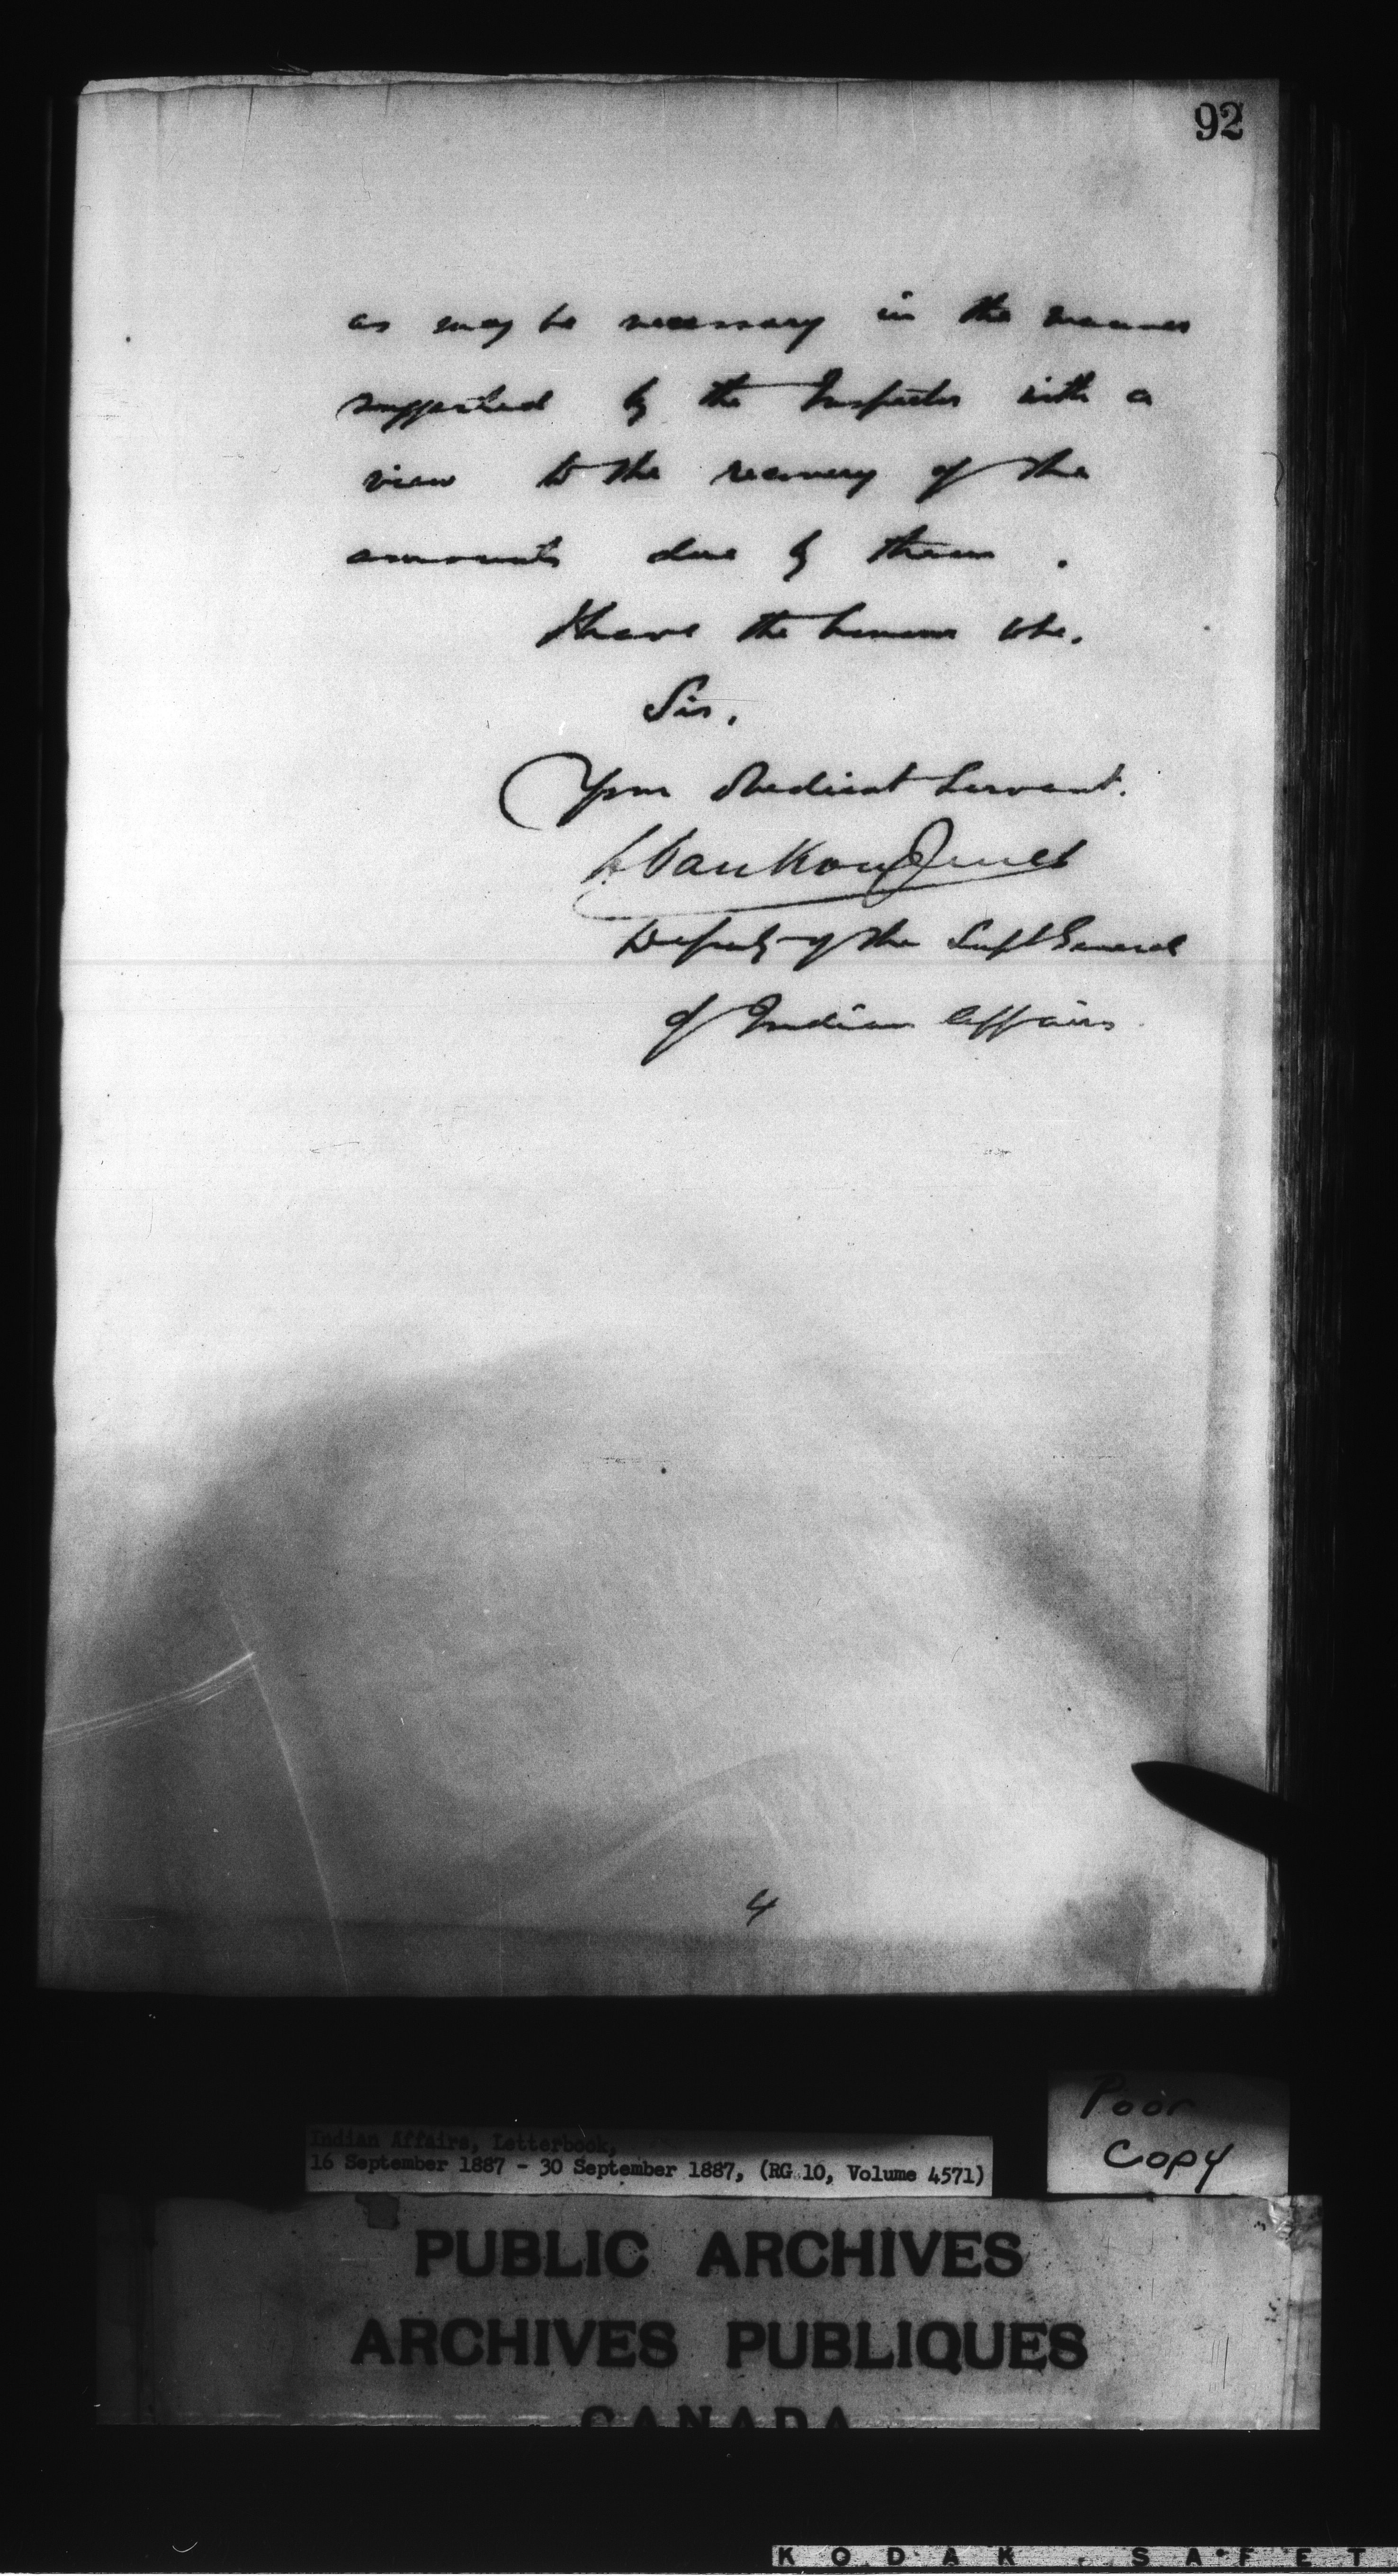 92
as may be necessary in the manner
suggested by the Inspector with a
view to the recovery of the
amounts due by them.
I have the honour to be.
Sir,
Your obedient Servant.
L. VanKoughnet
Deputy of the Supt General
of Indian Affairs
4
Poor
Copy
Indian Affairs, Letterbook,
16 September 1887 - 30 September 1887, (RG 10, Volume 4571)
PUBLIC ARCHIVES
ARCHIVES PUBLIQUES
CANADA
KODAK SAFET